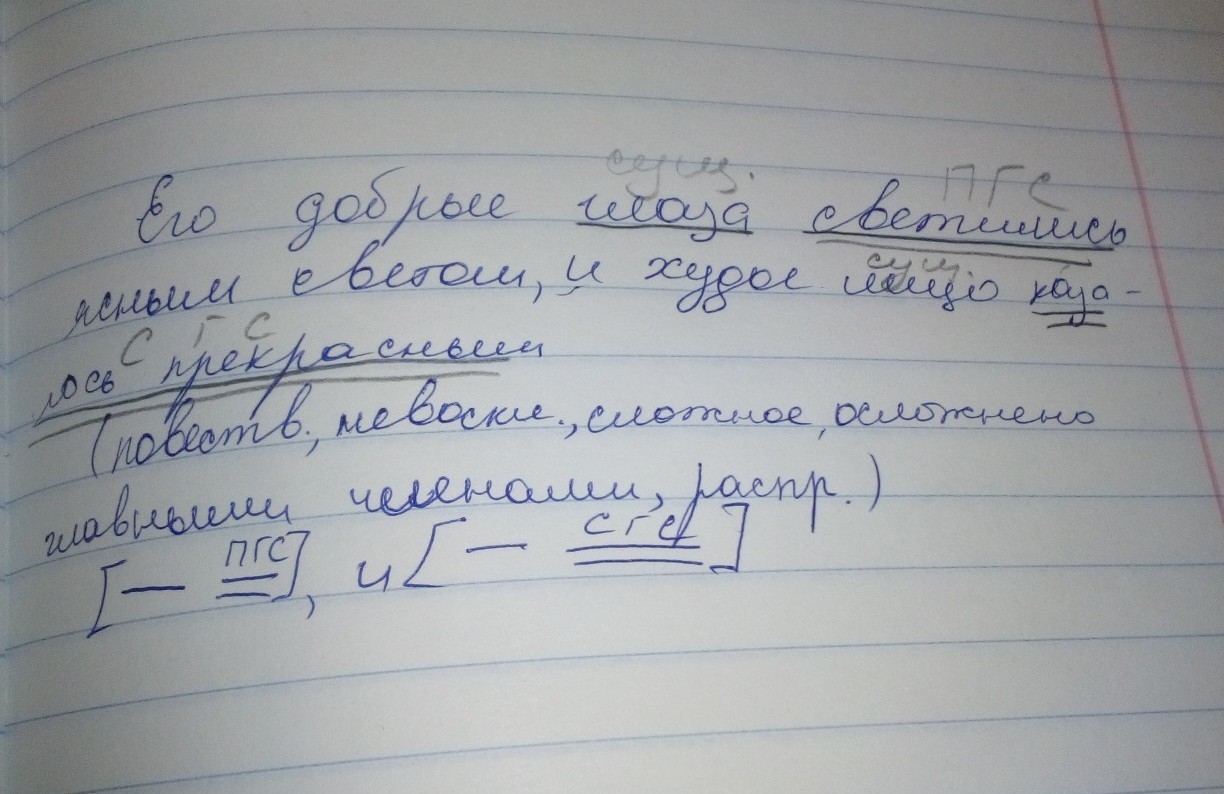 сущ. ПГС
Его добрые глаза светились
сущ.
ясным светом, и худое лицо каза-
СГС
лось прекрасным
(повеств., невоскл., сложное, осложнено
главными членами, распр.)
[— ПГС], и [— СГС]